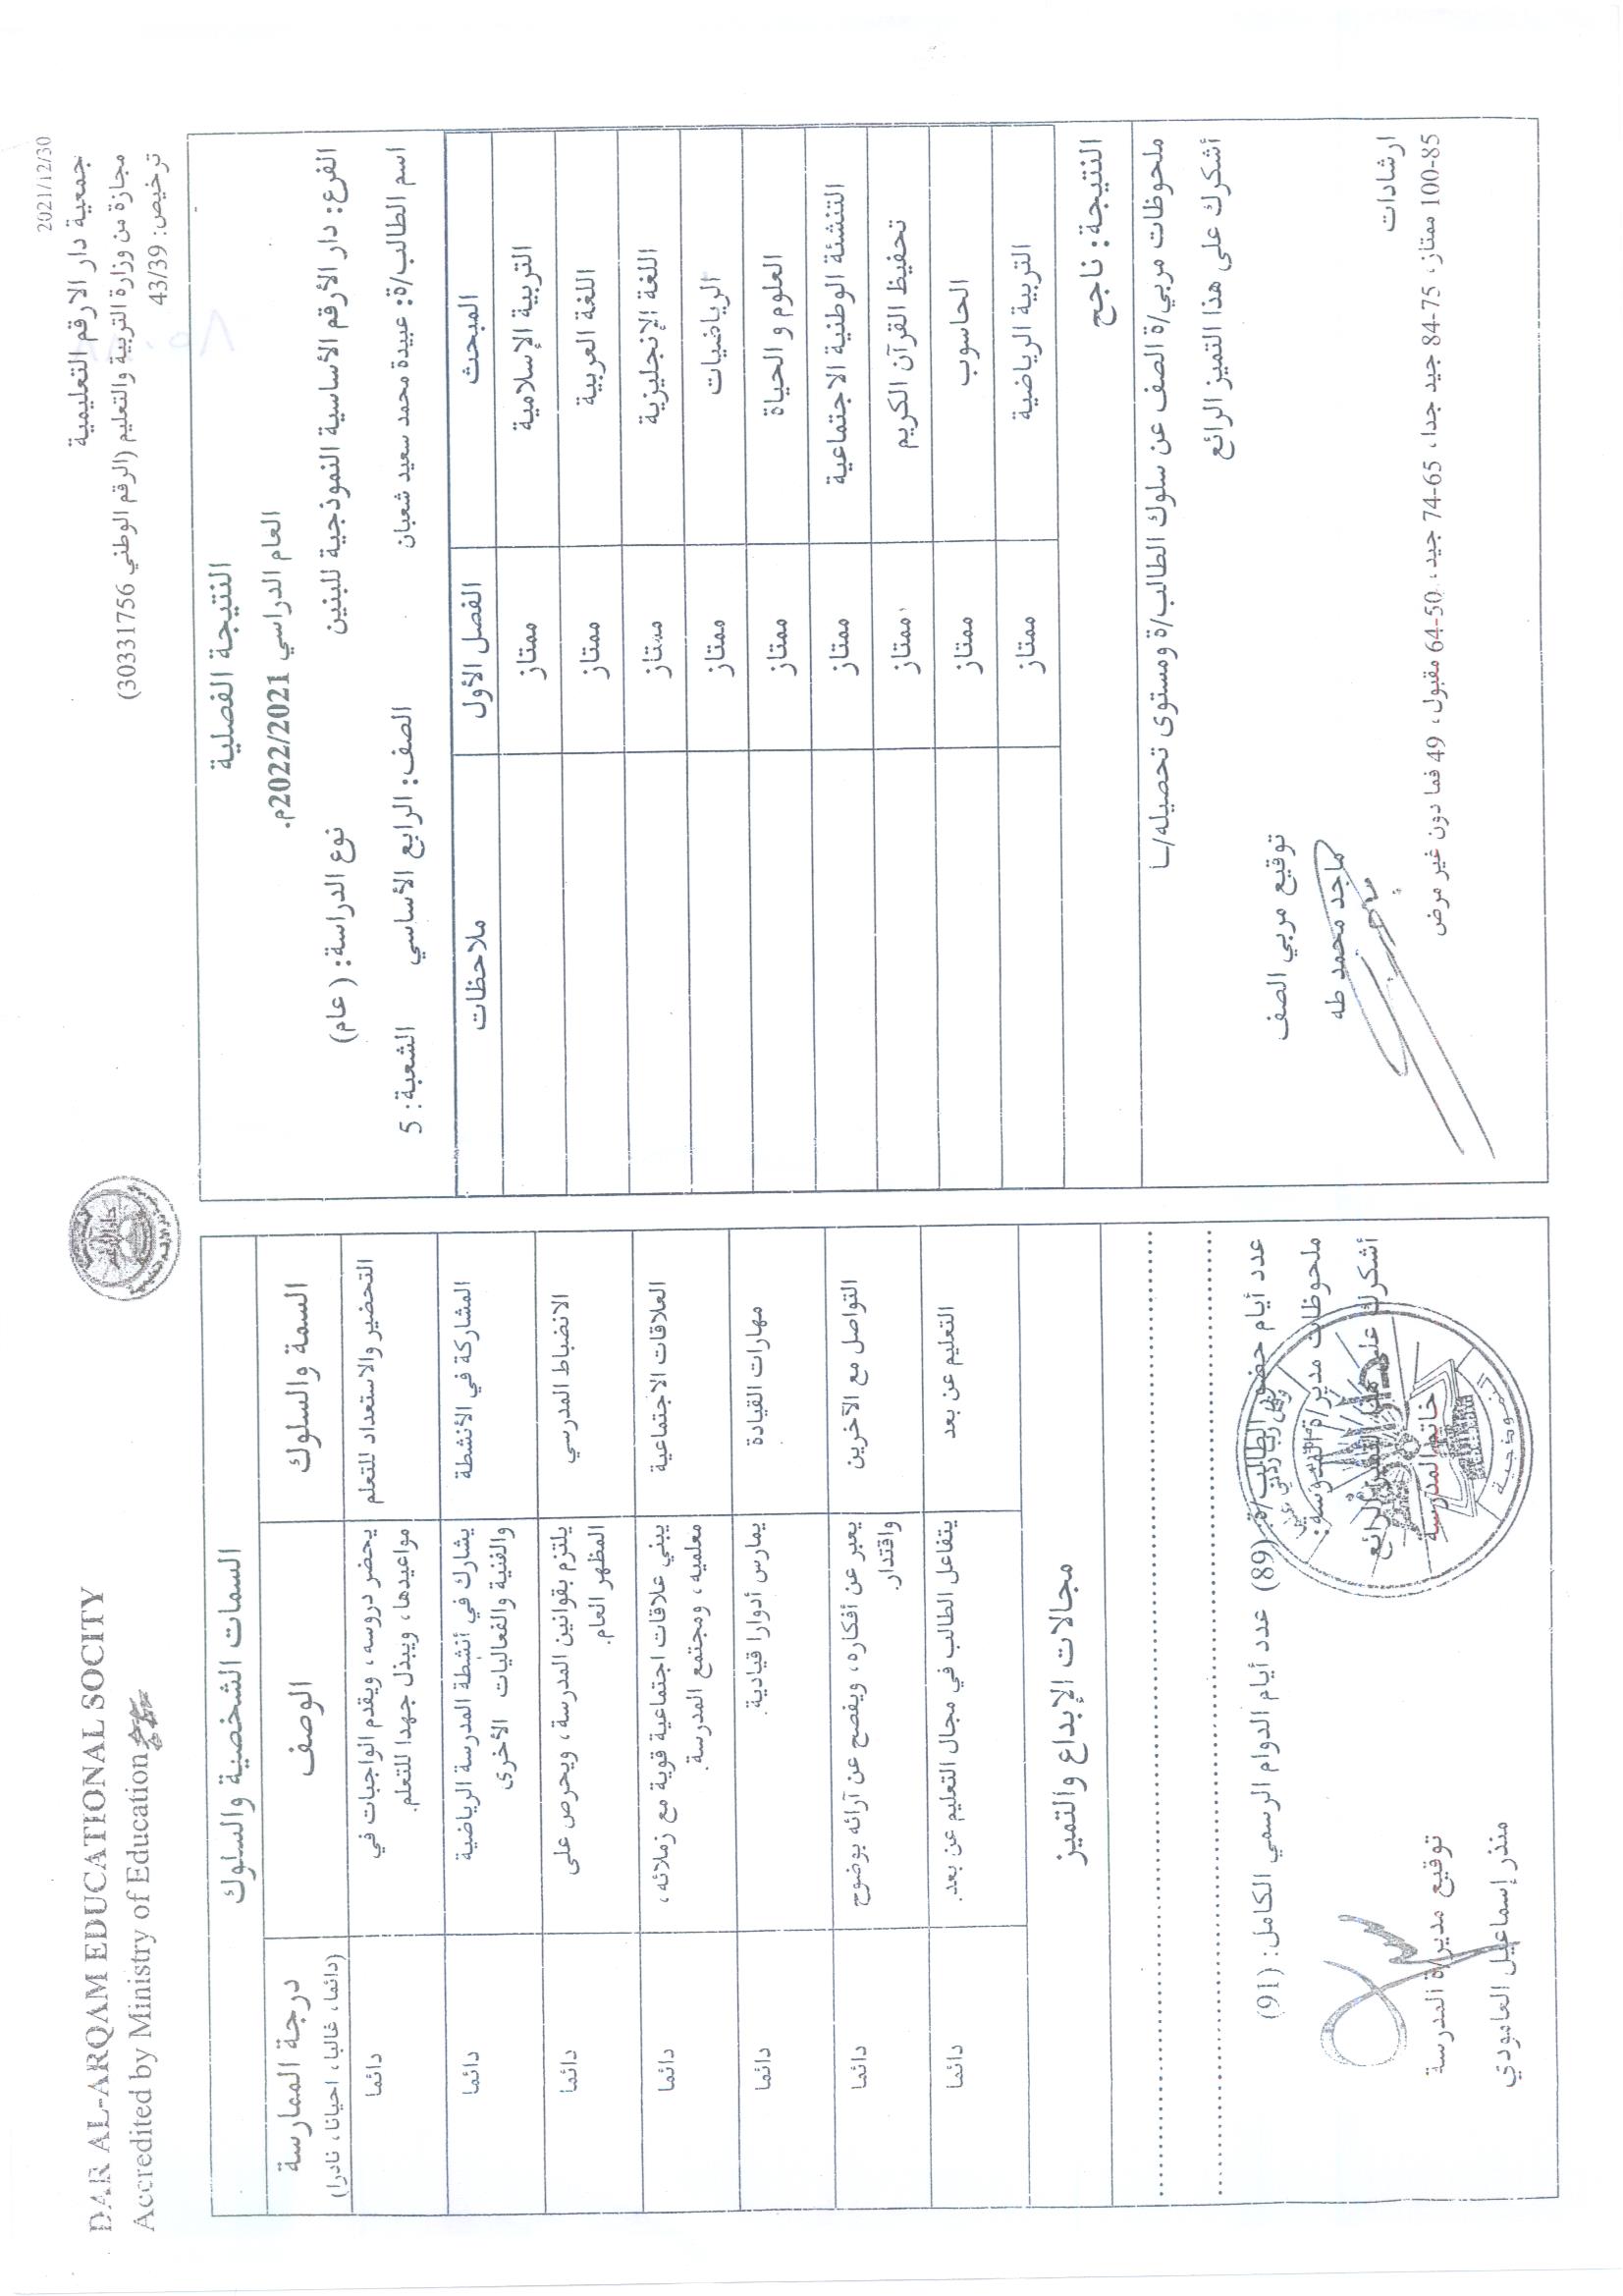 2021/12/30
جمعية دار الارقم التعليمية
مجازة من وزارة التربية والتعليم (الرقم الوطني 30331756)
ترخيص: 43/39
DAR AL-ARQAM EDUCATIONAL SOCITY
Accredited by Ministry of Education
النتيجة الفصلية
العام الدراسي 2022/2021م.
الفرع: دار الأرقم الأساسية النموذجية للبنين نوع الدراسة: (عام)
اسم الطالب/ة: عبيدة محمد سعيد شعبان الصف: الرابع الأساسي الشعبة: 5
المبحث الفصل الأول ملاحظات
التربية الإسلامية ممتاز
اللغة العربية ممتاز
اللغة الإنجليزية ممتاز
الرياضيات ممتاز
العلوم و الحياة ممتاز
التنشئة الوطنية الاجتماعية ممتاز
تحفيظ القرآن الكريم ممتاز
الحاسوب ممتاز
التربية الرياضية ممتاز
النتيجة: ناجح
ملحوظات مربي/ة الصف عن سلوك الطالب/ة ومستوى تحصيله/ـا
أشكرك على هذا التميز الرائع
توقيع مربي الصف
ماجد محمد طه
ارشادات
100-85 ممتاز، 75-84 جيد جدا، 65-74 جيد، 50-64 مقبول، 49 فما دون غير مرض
السمات الشخصية والسلوك
السمة والسلوك الوصف درجة الممارسة
(دائما، غالبا، احيانا، نادرا)
التحضير والاستعداد للتعلم يحضر دروسه، ويقدم الواجبات في دائما
مواعيدها، ويبذل جهدا للتعلم.
المشاركة في الأنشطة يشارك في أنشطة المدرسة الرياضية دائما
والفنية والفعاليات الأخرى
الانضباط المدرسي يلتزم بقوانين المدرسة، ويحرص على دائما
المظهر العام.
العلاقات الاجتماعية يبني علاقات اجتماعية قوية مع زملائه، دائما
معلميه، ومجتمع المدرسة.
مهارات القيادة يمارس أدوارا قيادية. دائما
التواصل مع الآخرين يعبر عن أفكاره، ويفصح عن آرائه بوضوح دائما
واقتدار.
التعليم عن بعد يتفاعل الطالب في مجال التعليم عن بعد. دائما
مجالات الإبداع والتميز
عدد أيام حضور الطالب/ة: (89) عدد أيام الدوام الرسمي الكامل: (91)
ملحوظات مدير/ة المدرسة:
أشكرك على هذا التميز الرائع
خاتم المدرسة
توقيع مدير/ة المدرسة
منذر إسماعيل العامودي